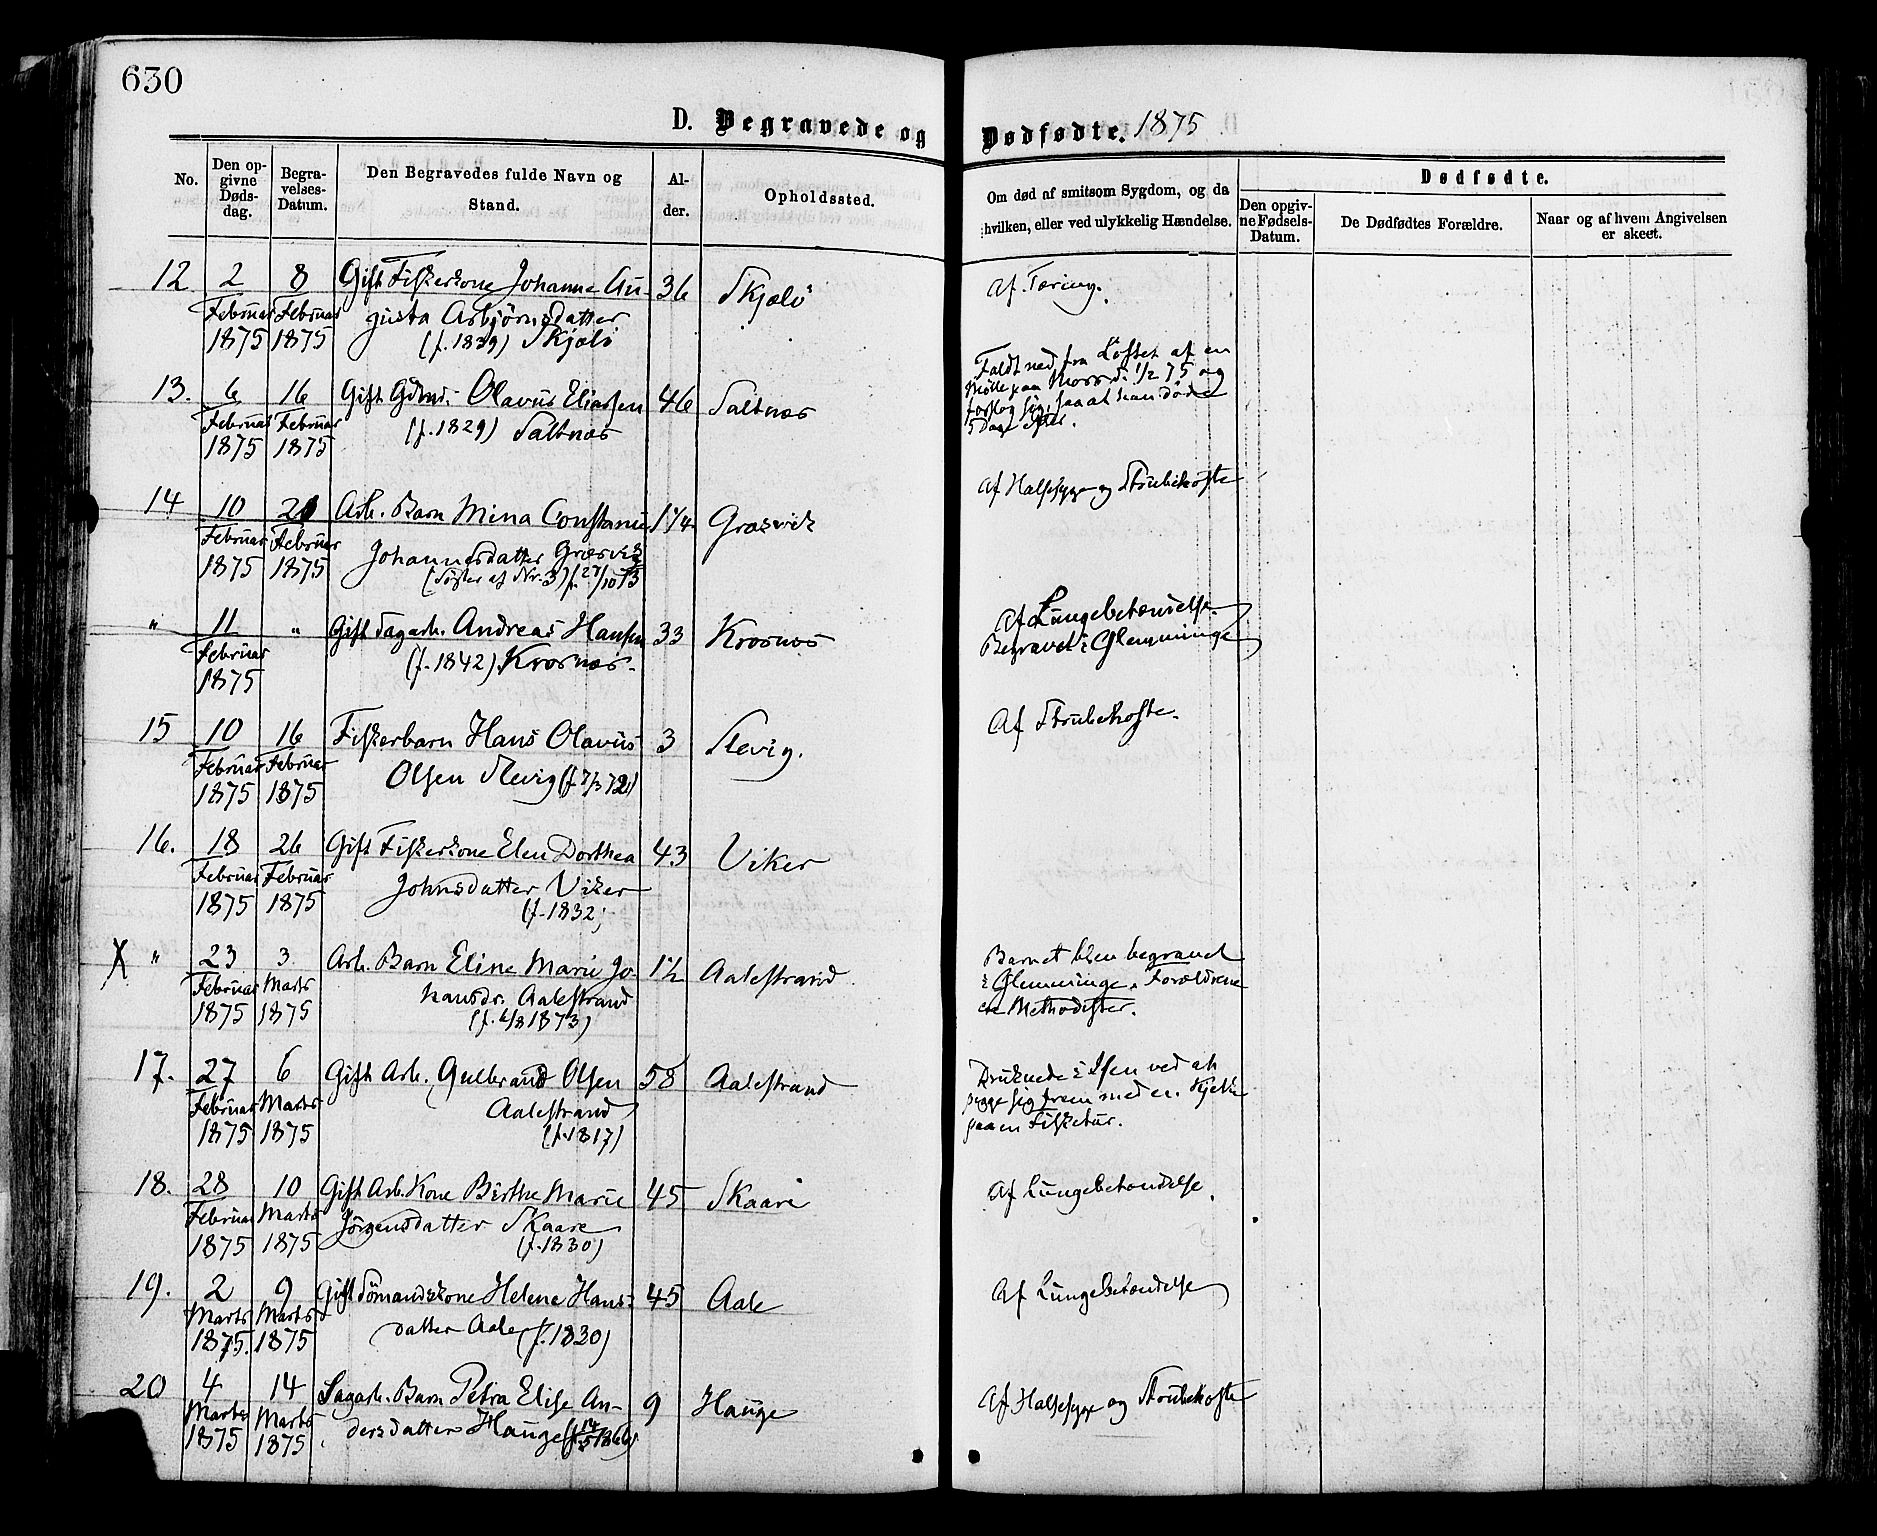 630
D. Begravede og Dødfødte. 1875
No.
Den op-
givne
Døds-
dag.
Begra-
velses-
Datum.
Den Begravedes fulde Navn og
Stand.
Al-
der.
Opholdssted.
Om død af smitsom Sygdom, og da
hvilken, eller ved ulykkelig Hændelse.
Dødfødte.
Den opgiv-
ne Fødsels-
Datum.
De Dødfødtes Forældre.
Naar og af hvem Angivelsen
er skeet.
12 2 8 Gift Fiskerkone Johanne Au- 36 Skjælö Af Tæring.
Februar Februar gusta Asbjørnsdatter
1875 1875 (f. 1839) Skjælö
13. 6 16 Gift Gdmd. Olavus Eliassen 46 Saltnæs
Februar Februar (f. 1829) Saltnæs
1875 1875
Faldt ned fra Loftet af en
Mølle paa Moss d. 1/2 75 og
forslog sig, saa at han døde
5 Dage efter.
14 10 20 Arb. Barn Mina Constance 1 1/4 Græsvik Af Halssyge og Strubehoste
Februar Februar Johannesdatter Græsvik
1875 1875 (Søster af Nr. 3) f. 27/10 73
" 11 " Gift Sagarb. Andreas Hansen 33 Krosnæs Af Lungebetændelse.
Februar (f. 1842) Krosnæs. Begravet i Glemminge
1875
15 10 16 Fiskerbarn Hans Olavus 3 Slevig. Af Strubehoste.
Februar Februar Olsen Slevig (f 7/3 72)
1875 1875
16. 18 26 Gift Fiskerkone Elen Dorthea 43 Viker
Februar Februar Johnsdatter Viker
1875 1875 (f. 1832)
X " 23 3 Arb. Barn Eline Marie Jo- 1 1/2 Aalestrand Barnet blev begravet
Februar Marts hansdr. Aalestrand i Glemminge. Forældrene
1875 1875 (f. 6/8 1873) ere Methodister.
17. 27 6 Gift Arb. Gulbrand Olsen 58 Aalestrand Druknede i Isen ved at
Februar Marts Aalestrand pigge sig frem med en Kjelke
1875 1875 (f. 1817) paa en Fisketur.
18. 28 10 Gift Arb. Kone Birthe Marie 45 Skaare Af Lungebetændelse.
Februar Marts Jørgensdatter Skaare
1875 1875 (f. 1830)
19. 2 9 Gift Sömandskone Helene Hans- 45 Aale Af Lungebetændelse
Marts Marts datter Aale (f. 1830)
1875. 1875
20 4 14 Sagarb. Barn Petra Elise An- 9 Hauge Af Halssyge og Strubehoste
Marts Marts dersdatter Hauge (f. 14/5 1866)
1875 1875